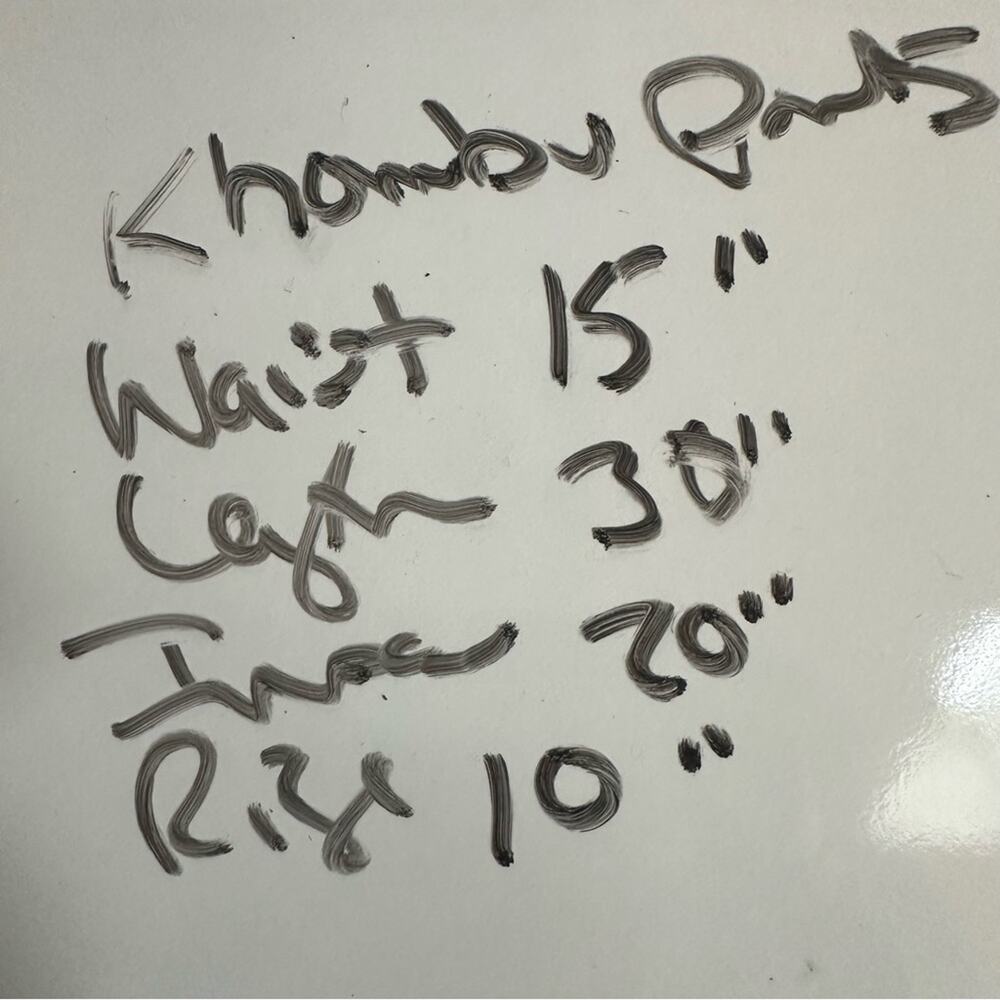 Khombu Pants
Waist 15"
Legth 30"
20"
Rise 10"